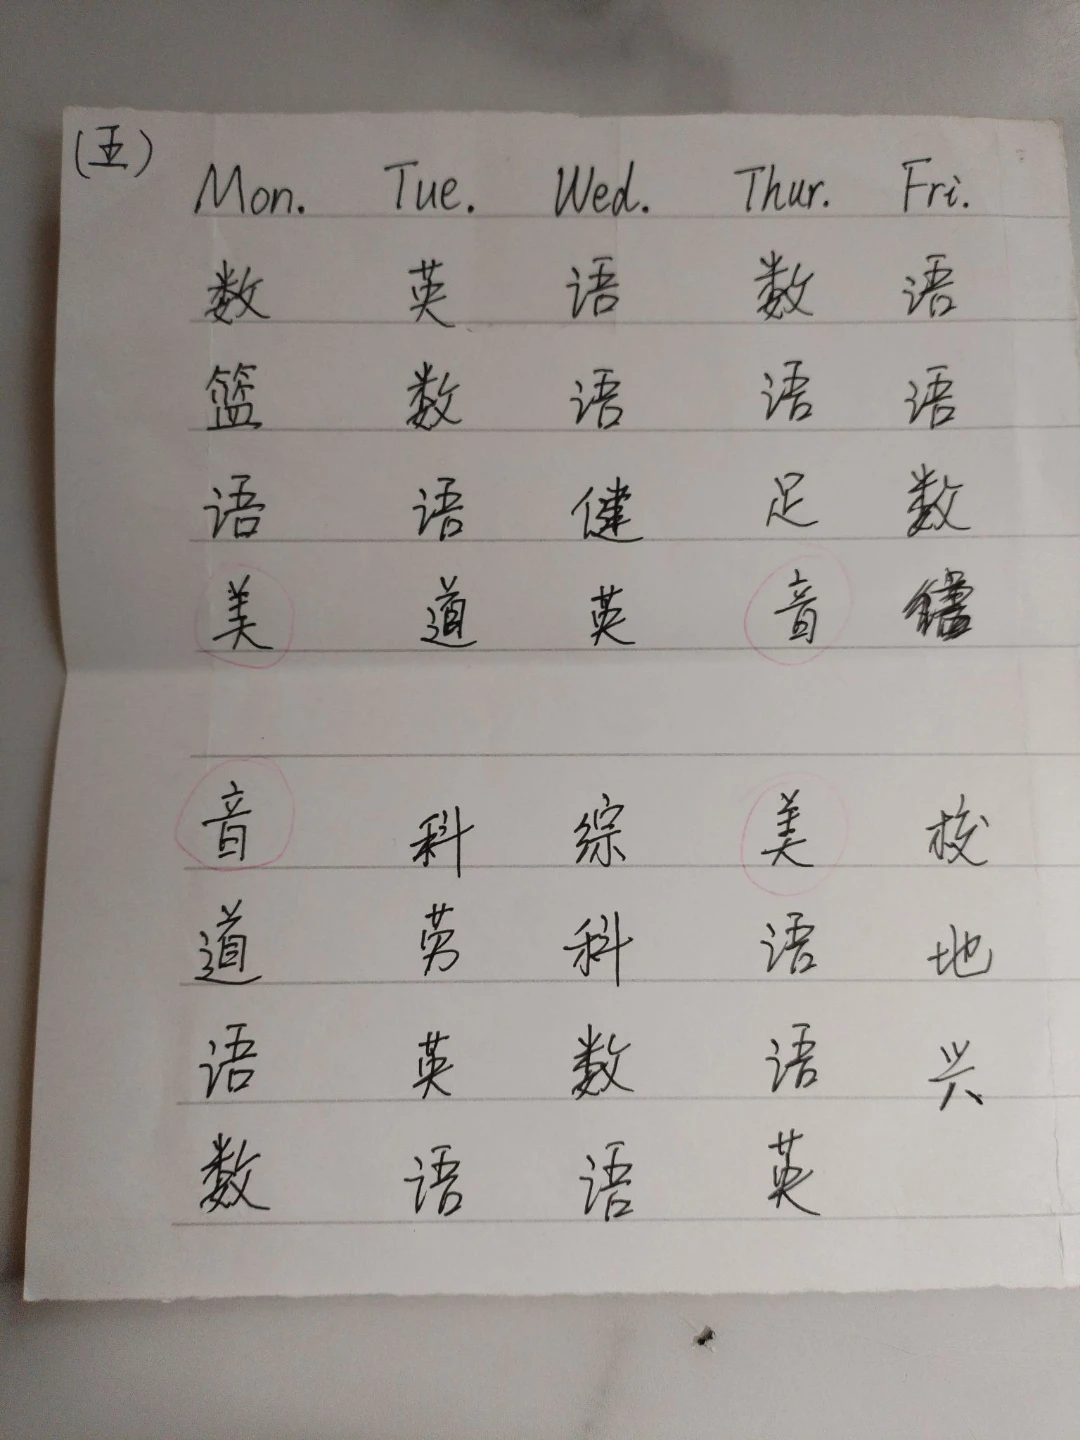 (五)
Mon. Tue. Wed. Thur. Fri.
数 英 语 数 语
篮 数 语 语 语
语 语 健 足 数
美 道 英 音
音 科 综 美 校
道 劳 科 语 地
语 英 数 语 兴
数 语 语 英